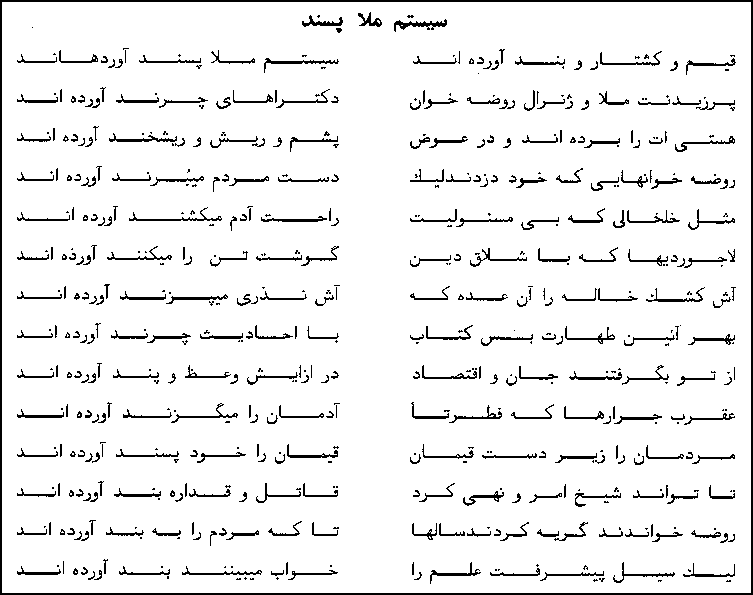 سیستم ملا پسند
قیم و کشتار و بند آورده اند سیستم ملا پسند آوردهاند
پرزیدنت ملا و ژنرال روضه خوان دکتراهای چرند آورده اند
هستی ات را برده اند و در عوض پشم و ریش و ریشخند آورده اند
روضه خوانهایی که خود دزدندلیك دست مردم میبُرند آورده اند
مثل خلخالی که بی مسئولیت راحت آدم میکشند آورده اند
لاجوردیها که با شلاق دین گوشت تن را میکنند آورده اند
آش کشك خاله را آن عده که آش نذری میپزند آورده اند
بهر آئین طهارت بس کتاب با احادیث چرند آورده اند
از تو بگرفتند جان و اقتصاد در ازایش وعظ و پند آورده اند
عقرب جرارها که فطرتاً آدمان را میگزند آورده اند
مردمان را زیر دست قیمان قیمان را خود پسند آورده اند
تا تواند شیخ امر و نهی کرد قاتل و قداره بند آورده اند
روضه خواندند گریه کردندسالها تا که مردم را به بند آورده اند
لیك سیل پیشرفت علم را خواب میبینند بند آورده اند